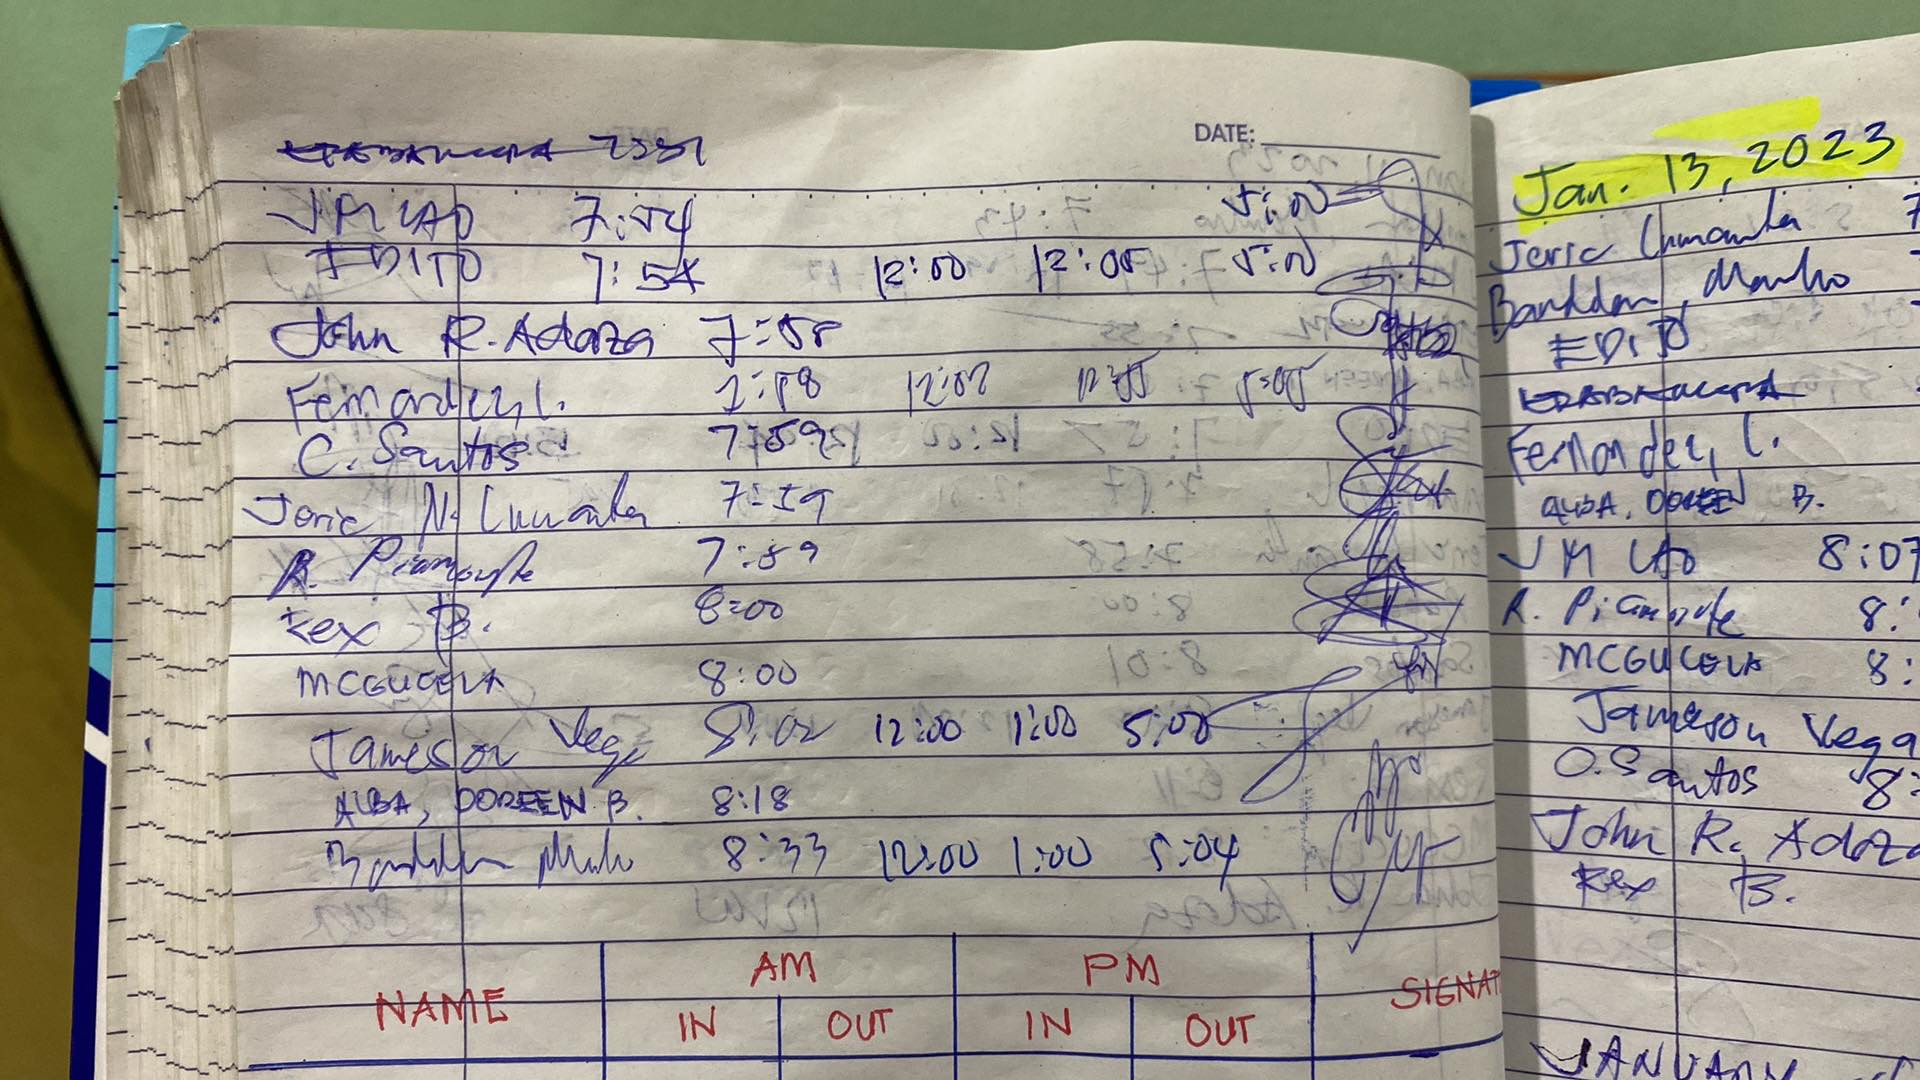 DATE:
JM LAO 7:54 5:00
EDITO 7:54 12:00 12:05 5:00
John R. Adaza 7:58
Fernandez, C. 7:58 12:02 12:55 5:05
C. Santos 7:59
Jeric N. 7:59
R. Piamonte 7:59
Rex B. 8:00
MCGUCELA 8:00
Jameson Vega 8:02 12:00 1:00 5:00
ALBA, DOREEN B. 8:18
8:33 12:00 1:00 5:04
NAME AM PM SIGNAT
IN OUT IN OUT
Jan. 13, 2023
Jeric 7
EDITO
Fernandez, C.
ALBA, DOREEN B.
JM LAO 8:07
R. Piamonte 8:
MCGUCELA 8:
Jameson Vega
C. Santos 8:
John R. Adaza
Rex B.
JANUARY